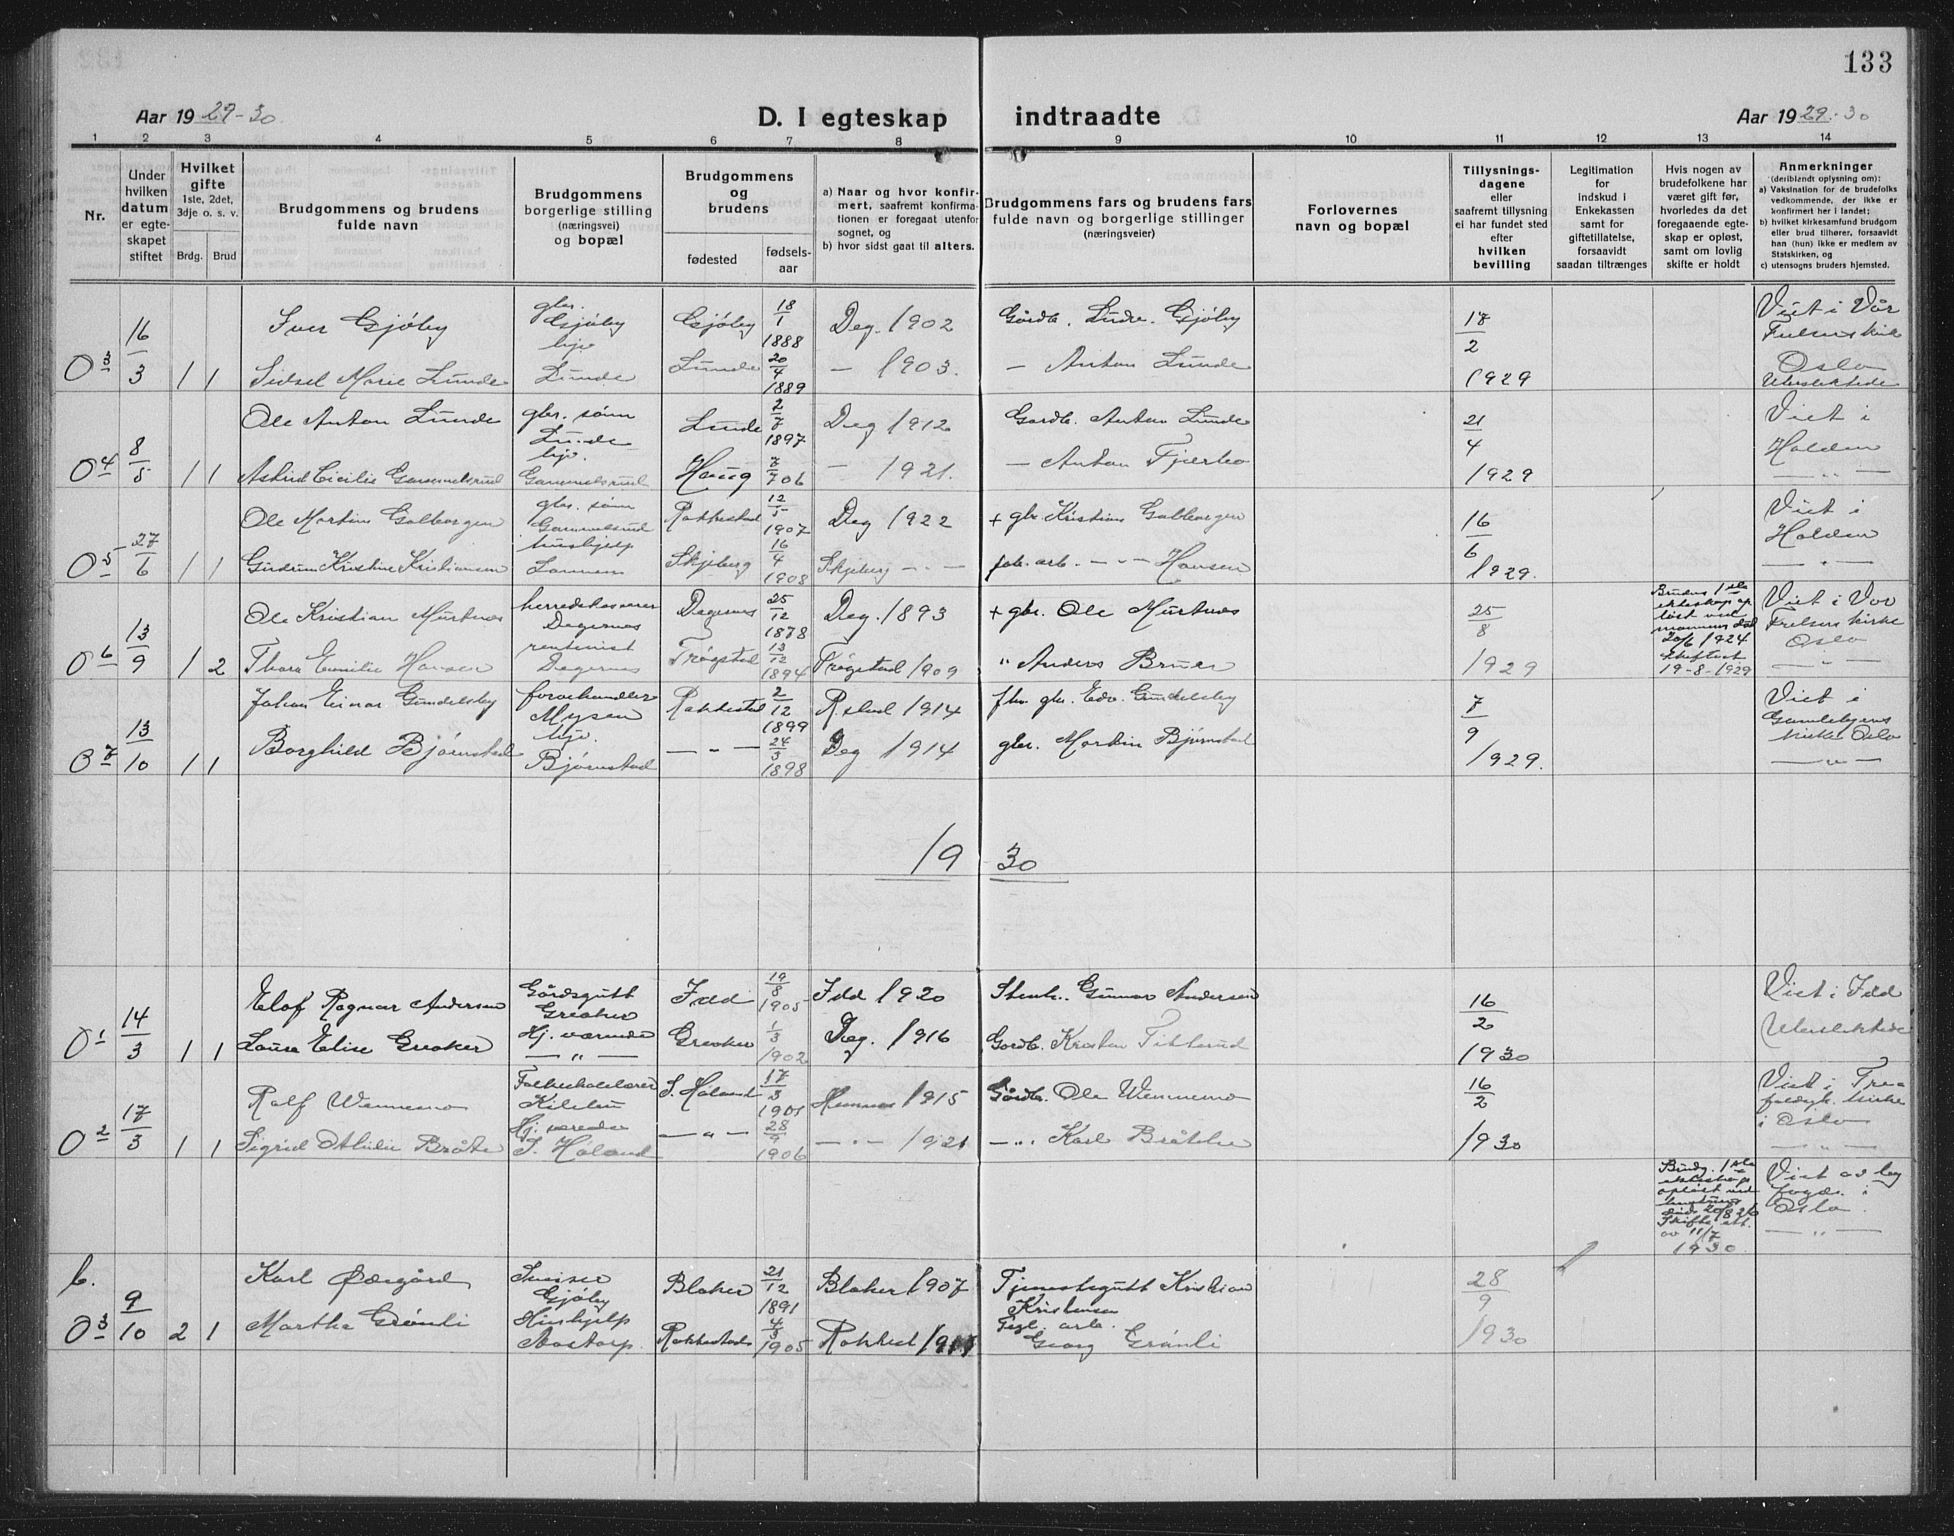 133
Aar 19 29-30
D. I egteskap indtraadte
Aar 19 29-30
1 2 3 4 5 6 7 8 9 10 11 12 13 14
Nr.
Under hvilken datum er egte-skapet stiftet
Hvilket gifte 1ste, 2det, 3dje o. s. v.
Brdg. Brud
Brudgommens og brudens fulde navn
Brudgommens borgerlige stilling (næringsvei) og bopæl
Brudgommens og brudens
fødested
fødsels-aar
a) Naar og hvor konfir-mert, saafremt konfirma-tionen er foregaat utenfor sognet, og
b) hvor sidst gaat til alters.
Brudgommens fars og brudens fars fulde navn og borgerlige stillinger (næringsveier)
Forlovernes navn og bopæl
Tillysnings-dagene eller saafremt tillysning ei har fundet sted efter hvilken bevilling
Legitimation for indskud i Enkekassen samt for giftetillatelse, forsaavidt saadan tiltrænges
Hvis nogen av brudefolkene har været gift før, hvorledes da det foregaaende egte-skap er opløst, samt om lovlig skifte er holdt
Anmerkninger (deriblandt oplysning om):
a) Vaksination for de brudefolks vedkommende, der ikke er konfirmert her i landet;
b) hvilket kirkesamfund brudgom eller brud tilhører, forsaavidt han (hun) ikke er medlem av Statskirken, og
c) utensogns bruders hjemsted.
03 16/3 1 1
Iver Gjöby gbr. Gjöby Gjöby 18/1 1888 Deg. 1902 Gårdb. Gjöby 17/2 1929 Viet i Vår Frelsers kirke Oslo
Sidsel Marie Lunde hjv. Lunde Lunde 20/4 1889 — 1903. — Anton Lunde
04 8/5 1 1
Ole Anton Lunde gbr. sönn Lunde Lunde 2/7 1897 Deg 1912 Gårdb. Anton Lunde 21/4 1929 Viet i Halden
Astrid Cicilie Gammelsrud hjv. Gammelsrud Haug 7/7 06 — 1921. — Anton — " —
05 27/6 1 1
Ole Martin Gulborgen gbr. sönn Gammelsrud Rakkestad 12/5 1907 Deg 1922 + gbr Kristian 16/6 1929. Viet i Halden
Gudrun Kristine Kristiansen hushjelp Skjeberg 16/4 1908 Skjeberg — " — fab. arb. — " — Hansen — " —
06 13/9 1 2
Ole Kristian Murtnes herredskasserer Degernes Degernes 25/12 1878 Deg. 1893 + gbr. Ole Murtnes 25/8 1929 Brudens 1ste ekteskap opløst ved mannens død 20/6 1924 19-8-1929 Viet i Vor Frelsers kirke Oslo
Thora Emilie Hansen Degernes Trøgstad 13/12 1894 Trøgstad 1909 " Anders — " —
07 13/10 1 1
Johan Einar Gundelsby Mysen Rakkestad 2/12 1899 R.stad 1914 gbr. Edv. Gundelsby 7/9 1929. Viet i Gamlebyens kirke Oslo
Borghild Bjørnstad hjv. Bjørnstad — " — 24/3 1898 Deg 1914 gbr. Martin Bjørnstad — " —
1930
01 14/3 1 1
Elof Ragnar Andersen Gårdsgutt Greaker Idd 19/8 1905 Idd 1920 Gunnar Andersen 16/2 1930 Viet i Idd
Laura Elise Greaker Hj. værende — " — Greaker 1/3 1902 Deg. 1916 Gårdb. Kristen Titterud
02 17/3 1 1
Rolf Wennemo S. Høland 17/3 1901 Hemnes 1915 Gårdb. Ole Wennemo 16/2 1930 Viet i Tre-foldigh. kirke i Oslo
Sigrid Othilie Bråte Hj. værende S. Høland — " — 28/9 1906 — " — 1921 — " Karl — " —
Brudg. 1ste ekteskap opløst ved hustruens død 20/8 26 Skifte att. av 11/7 1930.
Viet av byfogden i Oslo. — " —
b.
03 9/10 2 1
Karl Ødegård Gjøby Blaker 21/12 1891 Blaker 1907 Tjenestegutt Kristian Kristensen 28/9 1930
Martha Grönli Hushjelp Aastorp Rakkestad 4/3 1905 Rakkest Tegl. arb. Georg Grönli